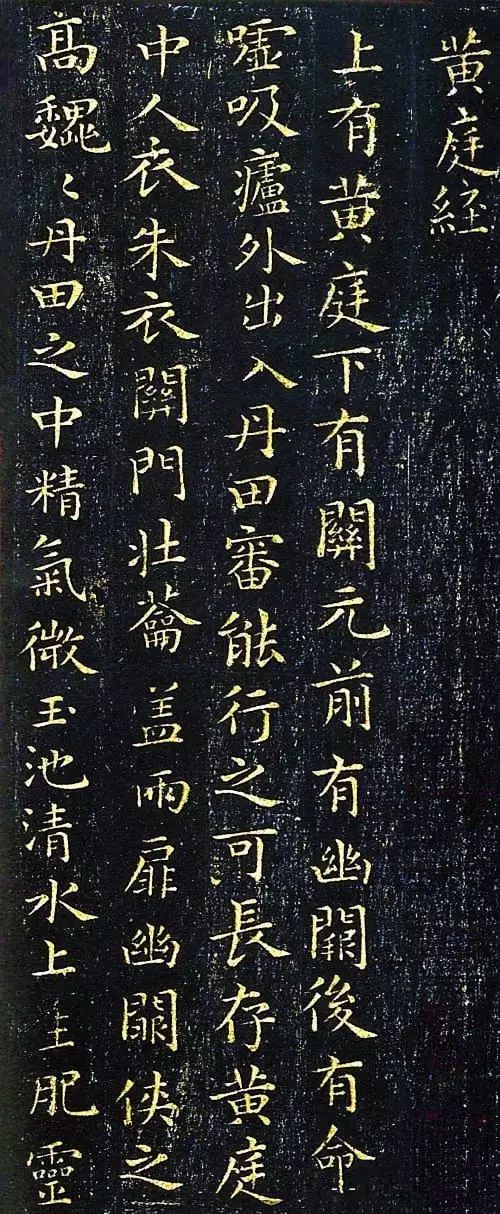 黄庭経
上有黄庭下有關元前有幽闕後有命
嘘吸廬外出入丹田審能行之可長存黄庭
中人衣朱衣關門壯蘥盖兩扉幽闕侠之
高巍〻丹田之中精氣微玉池清水上生肥靈